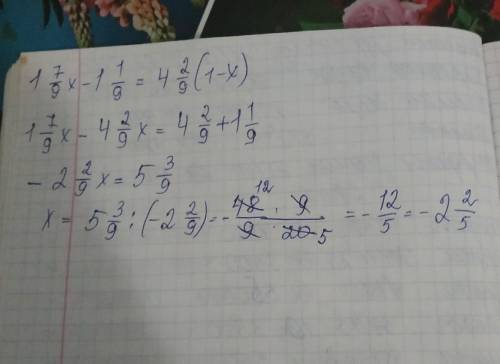 1 7/9 x - 1 1/9 = 4 2/9 (1-x)
1 7/9 x - 4 2/9 x = 4 2/9 + 1 1/9
- 2 2/9 x = 5 3/9
x = 5 3/9 : (-2 2/9) = - 48 12 · 9 / 9 · 20 5 = - 12/5 = - 2 2/5